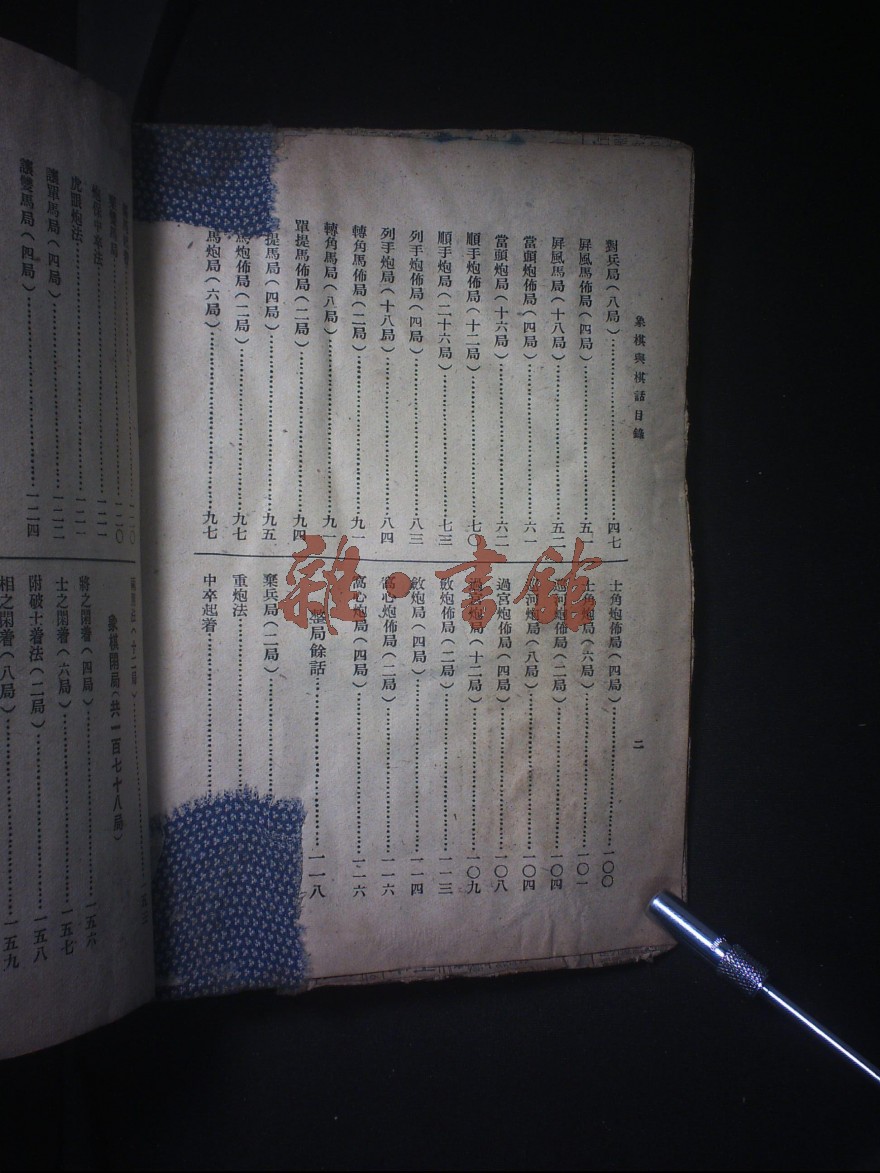 象棋與棋話目錄
二
對兵局(八局)……四七
屏風馬佈局(四局)……五一
屏風馬局(十八局)……五二
當頭炮佈局(四局)……六一
當頭炮局(十六局)……六二
順手炮佈局(十二局)……七〇
順手炮局(二十六局)……七三
列手炮佈局(四局)……八三
列手炮局(十八局)……八四
轉角馬佈局(二局)……九一
轉角馬局(八局)……九一
單提馬佈局(二局)……九四
提馬局(四局)……九五
馬炮佈局(二局)……九七
馬炮局(六局)……九七
士角炮佈局(四局)……一〇〇
士角炮局(六局)……一〇一
過河炮佈局(二局)……一〇四
過河炮局(八局)……一〇四
過宮炮佈局(四局)……一〇八
過宮炮局(十二局)……一〇九
斂炮佈局(二局)……一一三
斂炮局(四局)……一一四
窩心炮佈局(二局)……一一六
窩心炮局(四局)……一一六
整局餘話……一一八
棄兵局(二局)……
重炮法……
中卒起着……
中卒法……一二一
虎眼炮法……一二一
讓單馬局(四局)……一二二
讓雙馬局(四局)……一二四
象棋開局(共一百七十八局)
將之閑着(四局)……一五六
士之閑着(六局)……一五七
附破士着法(二局)……一五八
相之閑着(八局)……一五九
雜·書館